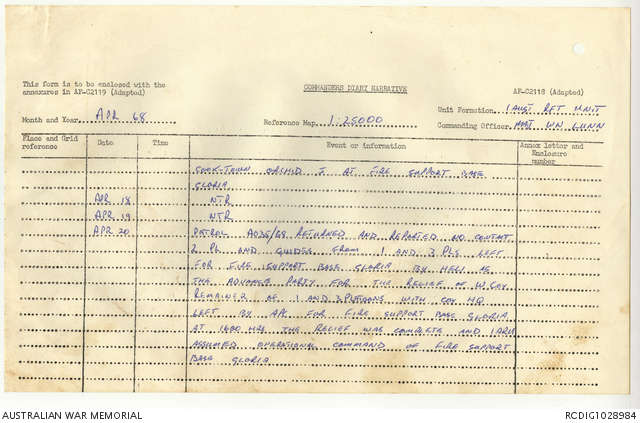 This form is to be enclosed with the
annexures in AF-C2119 (Adapted)
COMMANDERS DIARY NARRATIVE
AF-C2118 (Adapted)
Month and Year APR 68
Reference Map 1:25000
Unit Formation 1 AUST RFT UNIT
Commanding Officer MAJ WN LUNN
Place and Grid reference
Date
Time
Event or information
Annex letter and Enclosure number
COOK-TOWN ORCHID 2 AT FIRE SUPPORT BASE
GLORIA
APR 18 NTR
APR 19 NTR
APR 20 PATROL A035/68 RETURNED AND REPORTED NO CONTACT
2 PL AND GUIDES FROM 1 AND 3 PLS LEFT
FOR FIRE SUPPORT BASE GLORIA BY HELI AS
THE ADVANCE PARTY FOR THE RELIEF OF W COY
REMAINER OF 1 AND 3 PLTOONS WITH COY HQ
LEFT BY APC FOR FIRE SUPPORT BASE GLORIA
AT 1600 HRS THE RELIEF WAS COMPLETE AND 1 ARU
ASSUMED OPERATIONAL COMMAND OF FIRE SUPPORT
BASE GLORIA
AUSTRALIAN WAR MEMORIAL
RCDIG1028984